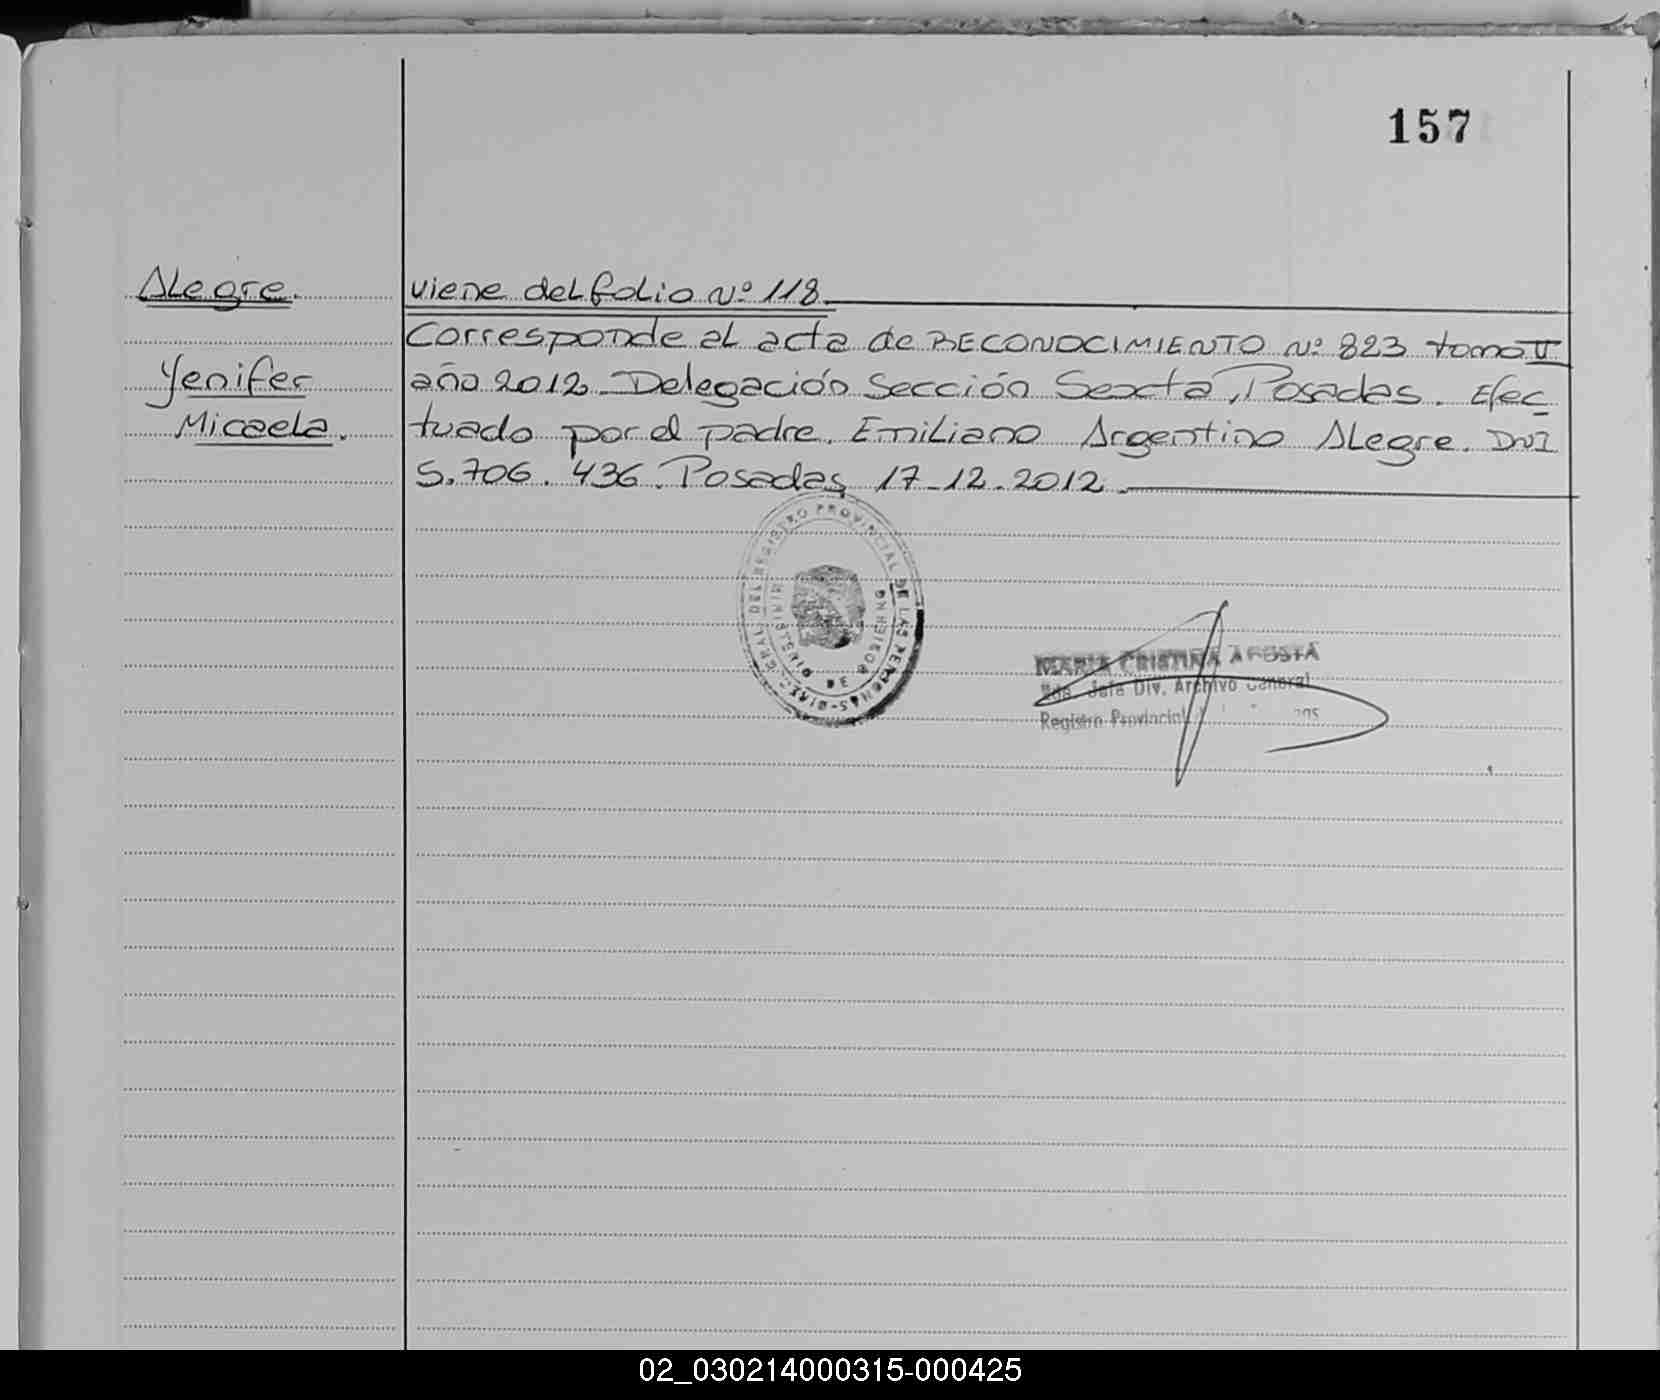 157
Alegre.
Yenifer
Micaela.
viene del folio Nº 118.
Corresponde al acta de RECONOCIMIENTO Nº 823 tomo II
año 2012. Delegación Sección Sexta, Posadas. Efec
tuado por el padre. Emiliano Argentino Alegre. DNI
5.706.436. Posadas 17-12-2012.
REGISTRO PROVINCIAL DE LAS PERSONAS
MINISTERIO DE GOBIERNO
MARIA CRISTINA ACOSTA
Jefe Div. Archivo General
Registro Provincial
02_030214000315-000425